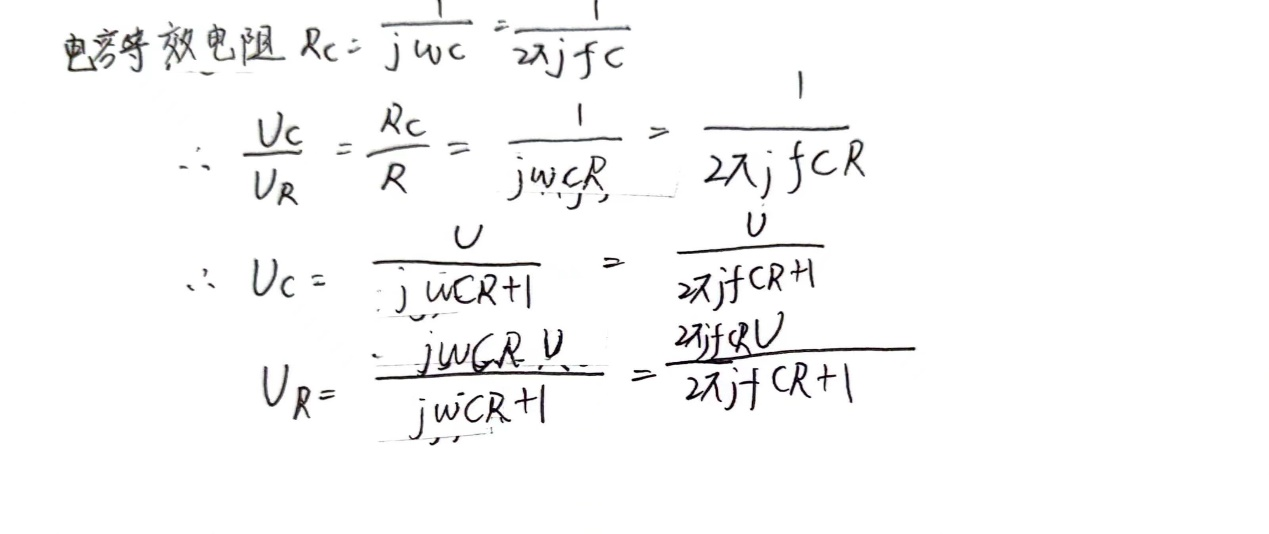 电容等效电阻 Rc = 1/(jωC) = 1/(2πjfC)
∴ Uc/UR = Rc/R = 1/(jωCR) = 1/(2πjfCR)
∴ Uc = U/(jωCR+1) = U/(2πjfCR+1)
UR = jωCRU/(jωCR+1) = 2πjfCRU/(2πjfCR+1)